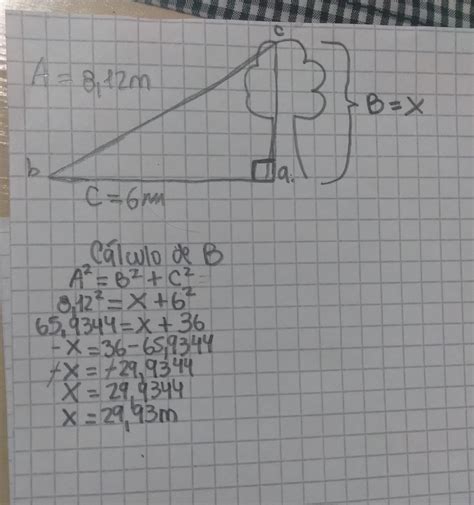 c
A = 8,12m
B = x
b
a.
C = 6m
Cálculo de B
A² = B² + C²
8,12² = x + 6²
65,9344 = x + 36
-x = 36 - 65,9344
-x = -29,9344
x = 29,9344
x = 29,93m